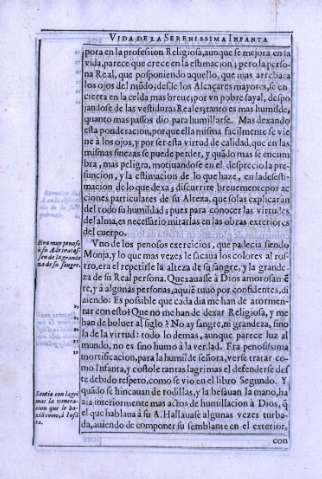 VIDA DE LA SERENISSIMA INFANTA
pora en la profession Religiosa, aunque se mejora en la
vida, parece que crece en la estimacion; pero la perso-
na Real, que posponiendo aquello, que mas arrebata
los ojos del mũdo; desde los Alcaçares mayores, se en-
cierra en la celda mas breve; por vn pobre sayal, despo
jandose de las vestiduras Reales; quanto es mas humilde,
quanto mas passos dio para humillarse. Mas dexando
esta ponderacion, porque ella misma facilmente se vie
ne à los ojos, y por ser esta virtud de calidad, que en las
mismas finezas se puede perder, y quãdo mas se encum
bra, mas peligra, motivandose en el desprecio la presun
cion, y la estimacion de lo que haze, en la desesti-
macion de lo que dexa; discurrirè brevemente por ac
ciones particulares de su Alteza, que solas explicaràn
del todo su humildad; pues para conocer las virtudes
del alma, es necessario mirarlas en las obras exteriores
del cuerpo.
Era muy penoso
à su A. le tratassen
de la grande
za de su sangre.
Vno de los penosos exercicios, que padecia siendo
Monja, y lo que mas vezes le sacaua los colores al ros-
tro, era el repetirle la alteza de su sangre, y la grande-
za de su Real persona. Quexauase à Dios amorosamẽ
te, y à algunas personas, que tuuo por confidentes, di
ziendo: Es possible que cada dia me han de atormen-
tar con esto? Que no me han de dexar Religiosa, y me
han de boluer al siglo? No ay sangre, ni grandeza, sino
la de la virtud: todo lo demas, aunque parece luz al
mundo, no es sino humo à la verdad. Era penosissima
mortificacion, para la humilde señora, verse tratar co-
mo Infanta, y costole tantas lagrimas el defenderse des
te debido respeto, como se vio en el libro Segundo. Y
Sentia con lagri
mas la venera-
cion que le ha-
zian como à Infan
ta.
quãdo se hincauan de rodillas, y la besauan la mano, ha
zia interiormente mas actos de humillacion à Dios, q̃
el que hablaua à su A. Hallauase algunas vezes turba-
da, auiendo de componer su semblante en el exterior,
con